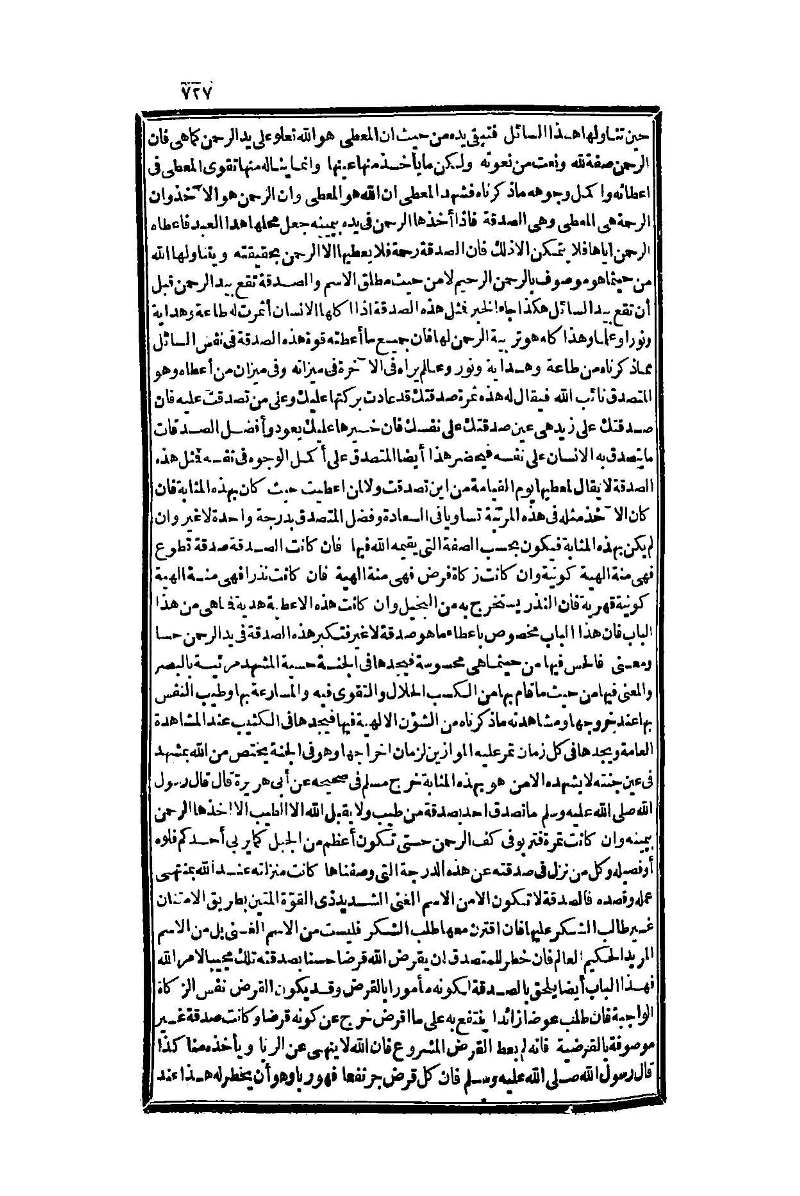 ٧٢٧
حين تناولها هذا السائل فتبقى يده من حيث ان المعطى هو الله تعلو على يد الرحمن كما هى فان
الرحمن صفة لله ونعت من نعوته ولكن ما يأخذ منها عينها وانما يناله منها تقوى المعطى فى
اعطائه وا كمل وجوهه ماذ كرناه فشهد المعطى ان الله هو المعطى وان الرحمن هو الا خذ وان
الرحمة هى المعطى وهى الصدقة فاذا أخذها الرحمن فى يده بيمينه جعل محلها هذا العبد فاعطاه
الرحمن اياها فلا يتمكن الا ذلك فان الصدقة رحمة فلا يعطيها الا الرحمن بحقيقته ويتناولها الله
من حيث ما هو موصوف بالرحمن الرحيم لا من حيث مطلق الاسم والصدقة تقع بيد الرحمن قبل
أن تقع بيد السائل هكذا جاء الخبر فمثل هذه الصدقة اذا ا كلها الانسان أثمرت له طاعة وهداية
ونورا وعلما وهذا كله هو تربية الرحمن لها فان جميع ما أعطته قوة هذه الصدقة فى نفس السائل
مماذ كرناه من طاعة وهداية ونور وعلم يراه فى الا خرة فى ميزانه وفى ميزان من أعطاه وهو
المتصدق نائب الله فيقال له هذه ثمرة صدقتك قد عادت بركتها عليك وعلى من تصدقت عليه فان
صدقتك على زيد هى عين صدقتك على نفسك فان خيرها عليك يعود وأفضل الصدقات
ما يتصدق به الانسان على نفسه فيحضر هذا أيضا المتصدق على أ كمل الوجوه فى نفسه فمثل هذه
الصدقة لا يقال لمعطيها يوم القيامة من اين تصدقت ولا لمن اعطيت حيث كان بهذه المثابة فان
كان الا خذ مثله فى هذه المرتبة تساويا فى السعادة وفضل المتصدق بدرجة واحدة لا غير وان
لم يكن بهذه المثابة فيكون بحسب الصفة التى يقيمه الله فيها فان كانت الصدقة صدقة تطوع
فهى منة الهية كونية وان كانت زكاة فرض فهى منة الهية فان كانت نذرا فهى منة الهية
كونية قهرية فان النذر يستخرج به من البخيل وان كانت هذه الاعطية هدية فاهى من هذا
الباب فان هذا الباب مخصوص باعطاء ما هو صدقة لا غير فتكبر هذه الصدقة فى يد الرحمن حسا
ومعنى فالحس فيها من حيث ما هى محسوسة فيجدها فى الجنة حسية المشهد مرئية بالبصر
والمعنى فيها من حيث ما قام بها من الكسب الحلال والتقوى فيه والمسارعة بها وطيب النفس
بها عند خروجها ومشاهدته ماذ كرناه من الشؤن الالهية فيها فيجدها فى الكثيب عند المشاهدة
العامة ويجدها فى كل زمان تمر عليه الموازين لزمان اخراجها وهو فى الجنة يختص من الله بمشهد
فى عين جنته لا يشهده الا من هو بهذه المثابة خرج مسلم فى صحيحه عن أبى هريرة قال قال رسول
الله صلى الله عليه وسلم ما تصدق احد بصدقة من طيب ولا يقبل الله الا الطيب الا اخذها الرحمن
بيمينه وان كانت تمرة فتربو فى كف الرحمن حتى تكون أعظم من الجبل كما يربى أحدكم فلوه
أو فصيله وكل من نزل فى صدقته عن هذه الدرجة التى وصفناها كانت منزلته عند الله بمنتهى
علمه وقصده فالصدقة لا تكون الا من الاسم الغنى الشديد ذى القوة المتين بطريق الامتنان
غير طالب الشكر عليها فان اقترن معها طلب الشكر فليست من الاسم الغنى بل من الاسم
المريد الحكيم العالم فان خطر للمتصدق ان يقرض الله قرضا حسنا بصدقته تلك مجيبا لامر الله
فهذا الباب أيضا يلحق بالصدقة لكونه مأمورا بالقرض وقد يكون القرض نفس الزكاة
الواجبة فان طلب عوضا زائدا ينتفع به على ما اقرض خرج عن كونه قرضا وكانت صدقة غير
موصوفة بالقرضية فانه لم يعط القرض المشروع فان الله لا ينهى عن الربا ويأخذه منا كذا
قال رسول الله صلى الله عليه وسلم فان كل قرض جر نفعا فهو ربا وهو أن يخطر له هذا عند